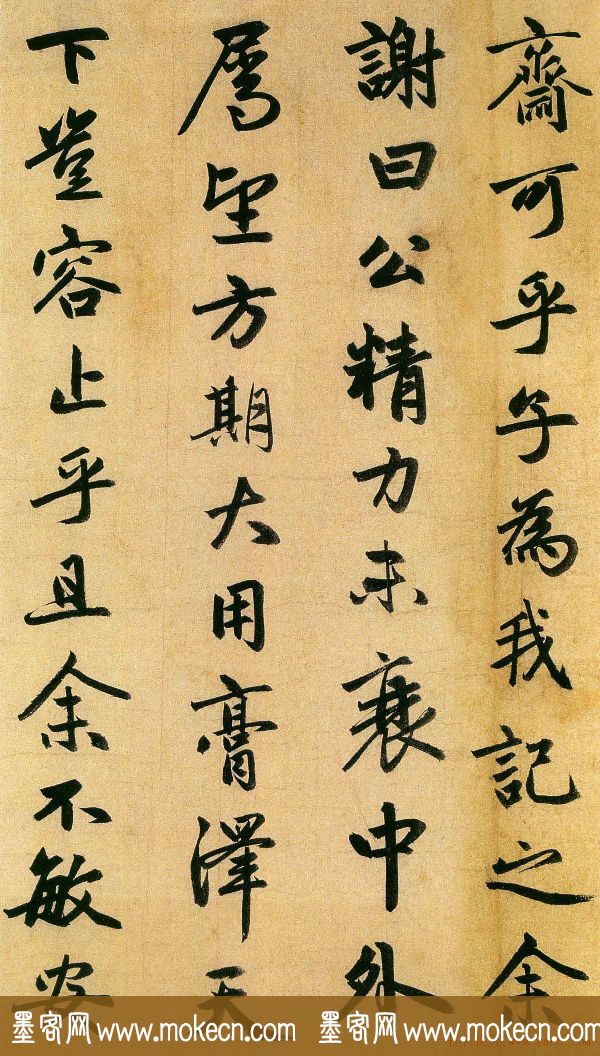 齋可乎子為我記之余
謝曰公精力未衰中外
屬望方期大用膏澤天
下豈容止乎且余不敏安
墨客网 www.mokecn.com 墨客网 www.mokecn.com